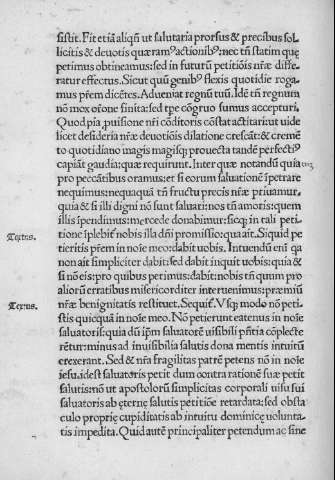 sistit. Fit etiã aliqñ ut salutaria prorsus & precibus sol
licitis & deuotis quæram⁹ actionib⁹: nec tñ statim quę
petimus obtineamus: sed in futurũ petitiõis nr̃æ diffe-
ratur effectus. Sicut quũ genib⁹ flexis quotidie roga
mus pr̃em dicẽtes. Adueniat regnũ tuũ. Idẽ tñ regnum
nõ mox or̃one finita: sed tpe cõgruo sumus accepturi.
Quod pia, puisione nr̃i cõditoris cõstat actitari: ut uide
licet desideria nr̃æ deuotiõis dilatione crescãt: & cremẽ
to quotidiano magis magisq; prouecta tandẽ perfecti⁹
capiãt gaudia: quæ requirunt. Inter quæ notandũ quia
pro peccãtibus oramus: et si eorum saluationẽ ĩpetrare
nequimus: nequaquã tñ fructu precis nr̃æ priuamur.
quia & si illi digni nõ sunt saluari: nos tñ amoris: quem
illis ĩpendimus: mercede donabimur: sicq; in tali peti
tione ĩpleb̃r nobis illa dñi promissio: qua ait. Siquid pe
tieritis pr̃em in noĩe meo: dabit uobis. Intuendũ em̃ qa
non ait simpliciter dabit: sed dabit inquit uobis: quia &
si nõ eis: pro quibus petimus: dabit: nobis tñ quum pro
aliorũ erratibus misericorditer interuenimus: præmiũ
nr̃æ benignitatis restituet. Sequit̃. Vsq; modo nõ pe-
tistis quicquã in noĩe meo. Nõ petierunt eatenus in noĩe
saluatoris: quia dũ ip̃m saluatorẽ uisibili pñtia cõplecte
rẽtur: minus ad inuisibilia salutis dona mentis intuitũ
erexerant. Sed & nr̃a fragilitas patrẽ petens nõ in noĩe
iesu. idest saluatoris petit dum contra rationẽ suæ petit
salutis: nõ ut apostolorũ simplicitas corporali uisu sui
saluatoris ab ęternę salutis petitiõe retardata: sed obsta
culo proprię cupiditatis ab intuitu dominicę uolunta-
tis impedita. Quid autẽ principaliter petendum ac sine
Textus.
Textus.